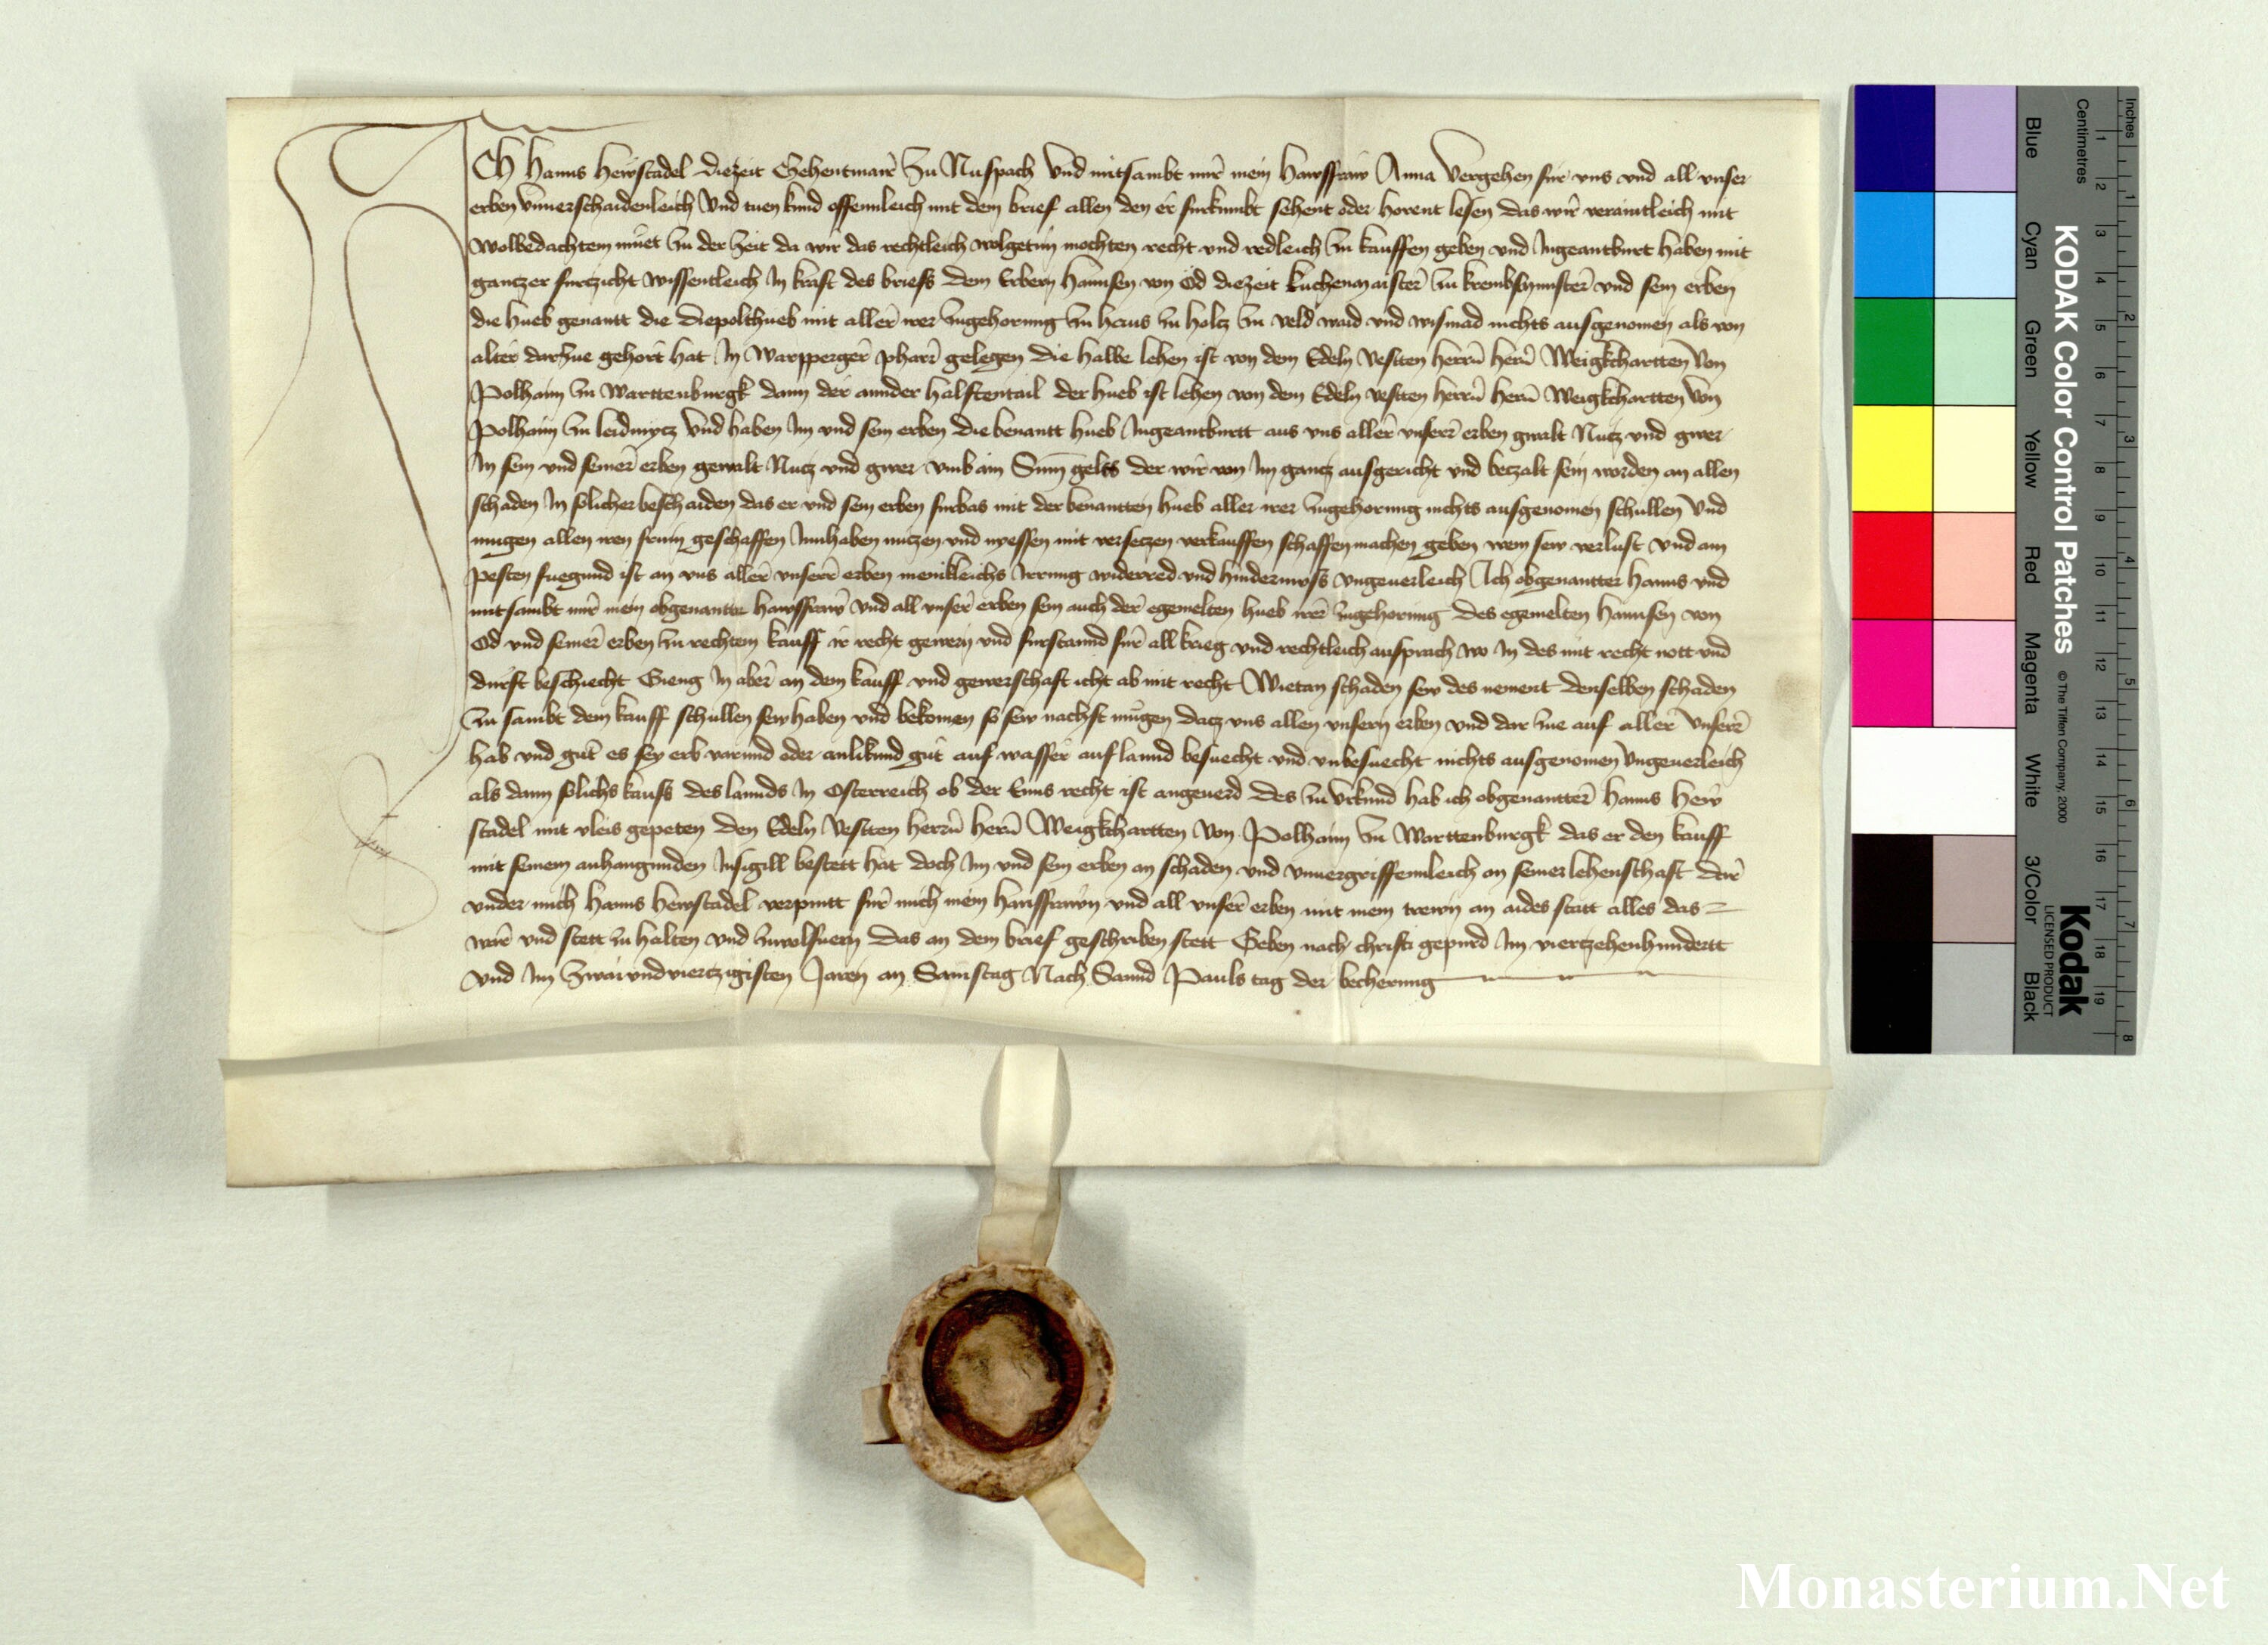 Ich Hanns Hewstadel diezeit Zehentmair Zu Nuspach Vnd mitsambt mir mein Hawsfraw Anna Vergehen fur vns vnd all vnser
erben Vnuerschaidenleich Vnd tuen kund offennleich mit dem brief allen den er furkumbt sehent oder horent lesen das wir veraintleich mit
Wolbedachtem muet Zu der Zeit da wir das rechtleich wolgetun mochten recht vnd redleich Zu kauffen geben vnd Ingeantburt haben mit
gantzer furtzicht wissentleich In kraft des briefs dem Erbern Hannsen von Öd diezeit kuchenmaister Zu krembsmunster vnd sein erben
die Hueb genantt die Diepolthueb mit aller irer Zugehorung Zu Haus Zu holtz Zu veld waid vnd wismad nichts ausgenomen als von
alter darZue gehort hat In Warpperger pharr gelegen Die halbe lehen ist von dem Edeln Vestten herrn hern Weigkhartten Von
Polhaim Zu Warttenburgk dann der annder halftentail der hueb ist lehen von dem Edeln vestten herrn hern Weigkhartten Von
Polhaim Zu leidnytz Vnd haben Im vnd sein erben die benantt hueb Ingeantburtt aus vns aller vnserr erben gwalt Nutz vnd gwer
In sein vnd seiner erben gewalt Nutz vnd gwer vmb ain Sum gelts der wir von Im gantz ausgericht vnd betzalt sein worden an allen
schaden In solicher beschaiden das er vnd sein erben furbas mit der benantten hueb aller irer Zugehorung nichts ausgenomen schullen Vnd
mugen allen iren frum geschaffen Innhaben nutzen vnd nyessen mit versetzen verkauffen schaffen machen geben wem sew verlust Vnd am
pesten fuegund ist an vns aller vnserr erben menikleichs Irrung widerred vnd hindernuss vngeuerleich Ich obgenantter Hanns vnd
mitsambt mir mein obgenantte hawsfraw vnd all vnser erben sein auch der egemelten hueb irer Zugehorung des egemelten Hannsen von
Od vnd seiner erben Zu rechtem kauff ir recht gewern vnd furstannd fur all krieg vnd rechtleich ansprach wo In des mit recht nott vnd
durft beschiecht Gieng In aber an dem kauff vnd gewerschaft icht ab mit recht Wietan schaden sew des nement denselben schaden
Zu sambt dem kauff schullen sew haben vnd bekomen so sew nachst mugen datz vns allen vnsern erben vnd dar Zue auf aller vnserr
hab vnd gut es sey erb varund oder anlikund gut auf wasser auf lannd besuecht vnd vnbesuecht nichts ausgenomen vngeuerleich
als dann solichs kaufs des lannds In Osterreich ob der Enns recht ist angeuerd Des Zu Vrkund hab ich obgenantter Hanns Hew
stadel mit vleis gepeten den Edeln Vestten herrn hern Weigkhartten Von Polhaim Zu Warttenburgk das er den kauff
mit seinem anhangunden Insigill bestett hat doch Im vnd sein erben an schaden vnd vnuergriffennleich an seiner lehenschaft Dar
vnder mich Hanns Hewstadel verpintt fur mich mein Hausfrawn vnd all vnser erben mit mein trewn an aides statt alles das
war vnd stett Zu halten vnd Zuuolfuern Das an dem brief geschriben stett Geben nach christi gepurd Im viertzehenhundertt
vnd Im Zwaivndviertzigisten Jaren an Samstag Nach Sannd Pauls tag der becherung
Inches
Centimetres
KODAK Color Control Patches © The Tiffen Company, 2000
Kodak
LICENSED PRODUCT
Blue Cyan Green Yellow Red Magenta White 3/Color Black
1 2 3 4 5 6 7 8 9 10 11 12 13 14 15 16 17 18 19
1 2 3 4 5 6 7 8
Monasterium.Net